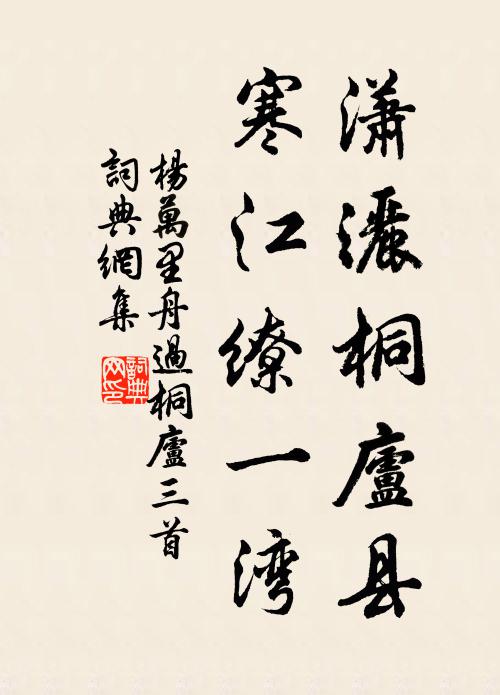 瀟灑桐廬县
寒江缭一湾
楊萬里舟過桐廬三首
詞典網集
詞典網印